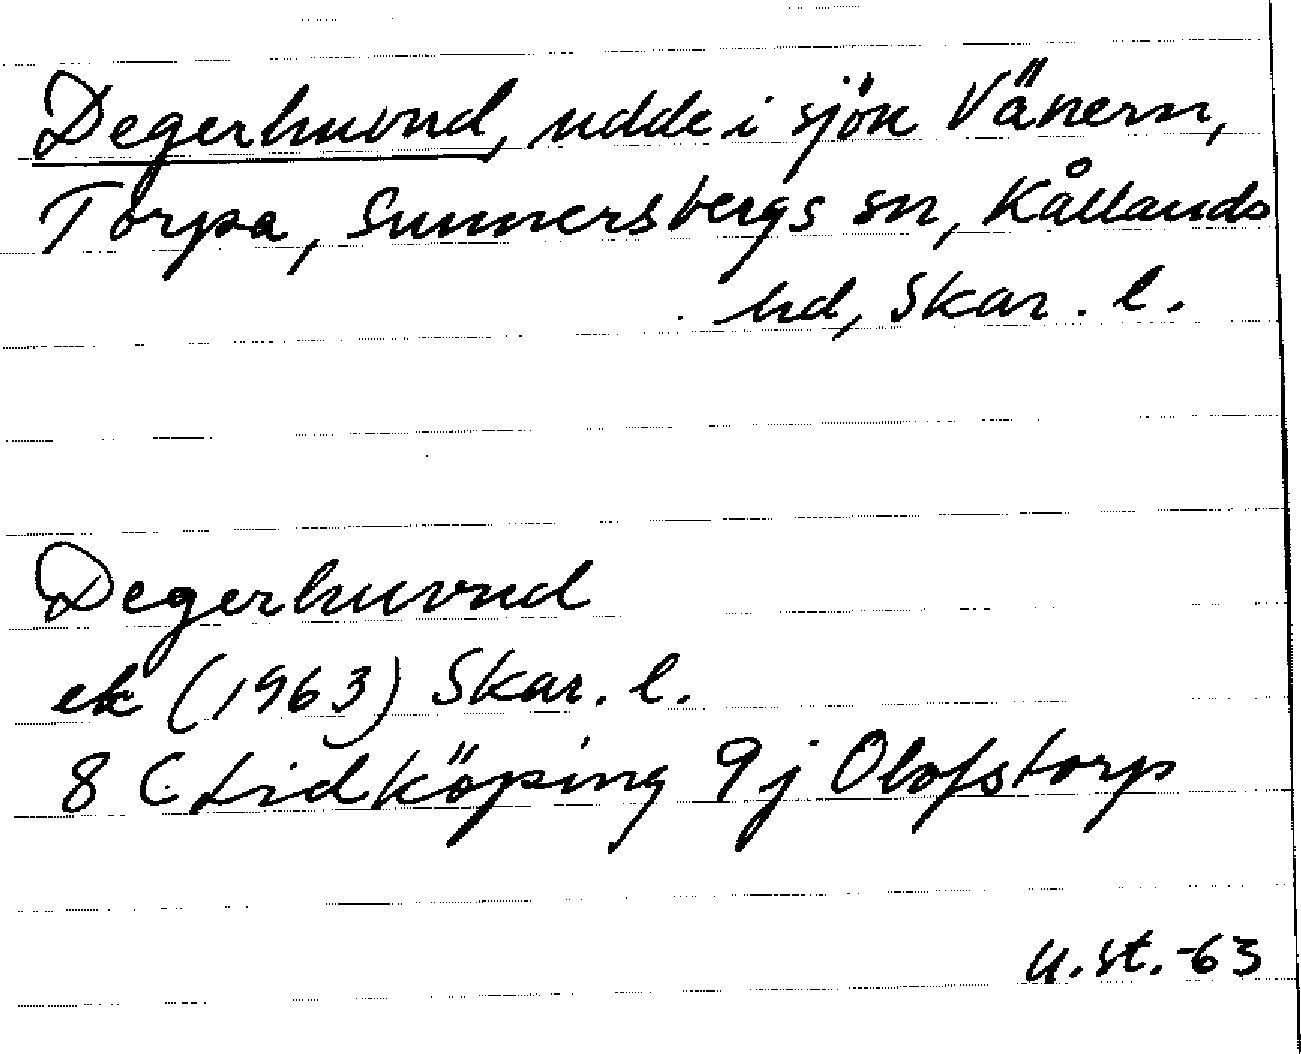 Degerhuvud, udde i sjön Vänern,
Torpa, Sunnersbergs sn, Kållands
hd, Skar. l.
Degerhuvud
ek (1963) Skar. l.
8 C Lidköping 9j Olofstorp
U.st.-63